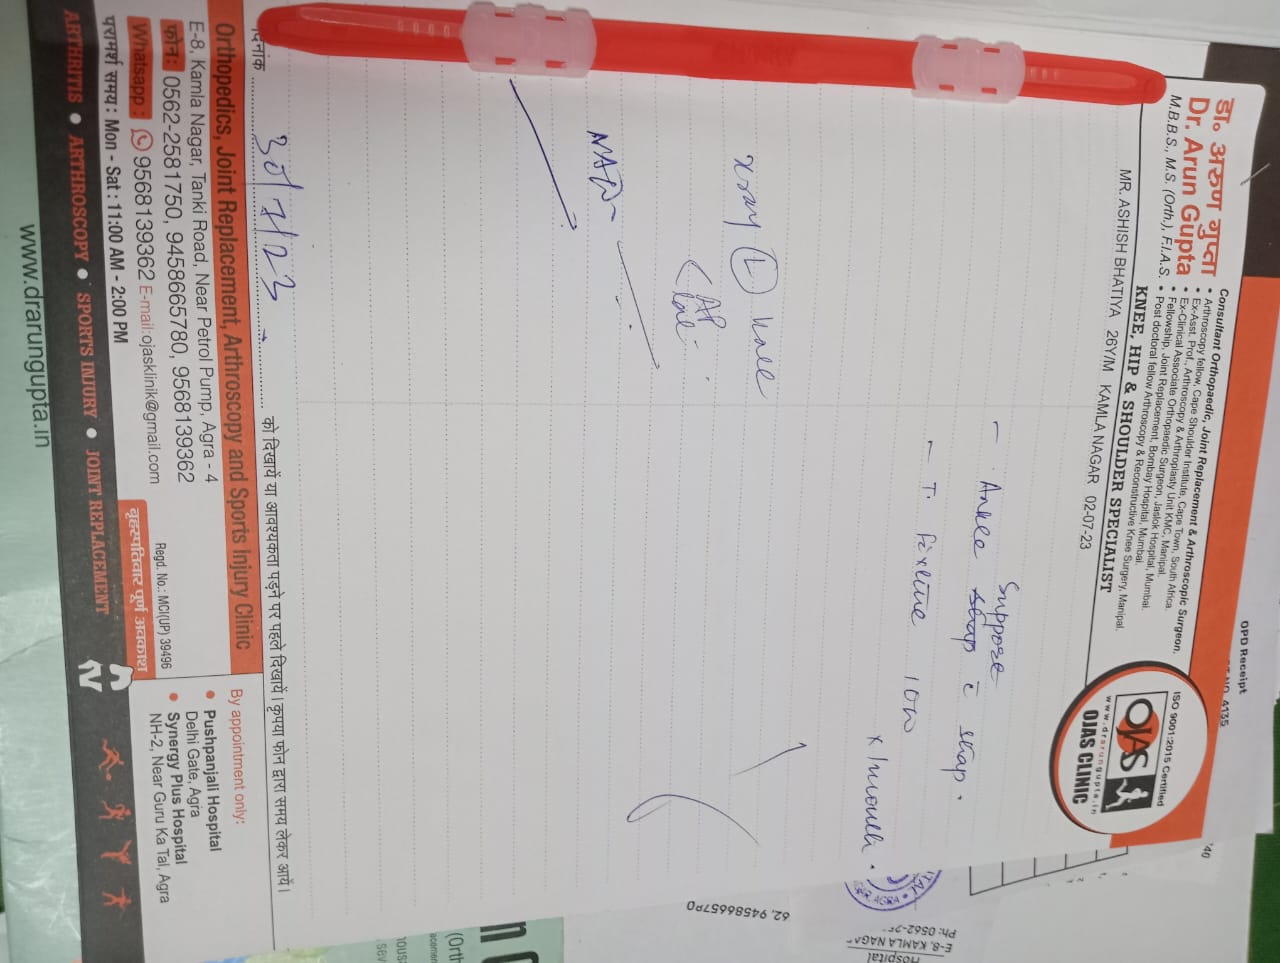 OPD Receipt
4135
डा. अरुण गुप्ता
Dr. Arun Gupta
M.B.B.S., M.S. (Orth.), F.I.A.S.
Consultant Orthopaedic, Joint Replacement & Arthroscopic Surgeon.
• Arthroscopy fellow, Cape Shoulder Institute, Cape Town, South Africa
• Ex-Asst. Prof., Arthroscopy & Arthroplasty Unit KMC, Manipal.
• Ex-Clinical Associate Orthopaedic Surgeon, Jaslok Hospital, Mumbai.
• Fellowship, Joint Replacement, Bombay Hospital, Mumbai.
• Post doctoral fellow Arthroscopy & Reconstructive Knee Surgery, Manipal.
KNEE, HIP & SHOULDER SPECIALIST
ISO 9001:2015 Certified
OJAS
www.drarungupta.in
OJAS CLINIC
MR. ASHISH BHATIYA 26Y/M KAMLA NAGAR 02-07-23
Suppose
- Ankle strap c̄ strap.
- T. fixeline 10w
x 1month.
xray (L) heel
AP
Lat
NAD
दिनांक 30/7/23 को दिखायें या आवश्यकता पड़ने पर पहले दिखायें। कृपया फोन द्वारा समय लेकर आयें।
Orthopedics, Joint Replacement, Arthroscopy and Sports Injury Clinic
E-8, Kamla Nagar, Tanki Road, Near Petrol Pump, Agra - 4
फोन: 0562-2581750, 9458665780, 9568139362
Whatsapp: 9568139362 E-mail:ojasklinik@gmail.com
परामर्श समय: Mon - Sat : 11:00 AM - 2:00 PM
Regd. No.: MCI(UP) 39496
बृहस्पतिवार पूर्ण अवकाश
By appointment only:
• Pushpanjali Hospital
Delhi Gate, Agra
• Synergy Plus Hospital
NH-2, Near Guru Ka Tal, Agra
ARTHRITIS • ARTHROSCOPY • SPORTS INJURY • JOINT REPLACEMENT
www.drarungupta.in
Hospital
E-8, KAMLA NAGA
Ph: 0562-25
62, 9458665780
AGRA
(Orth